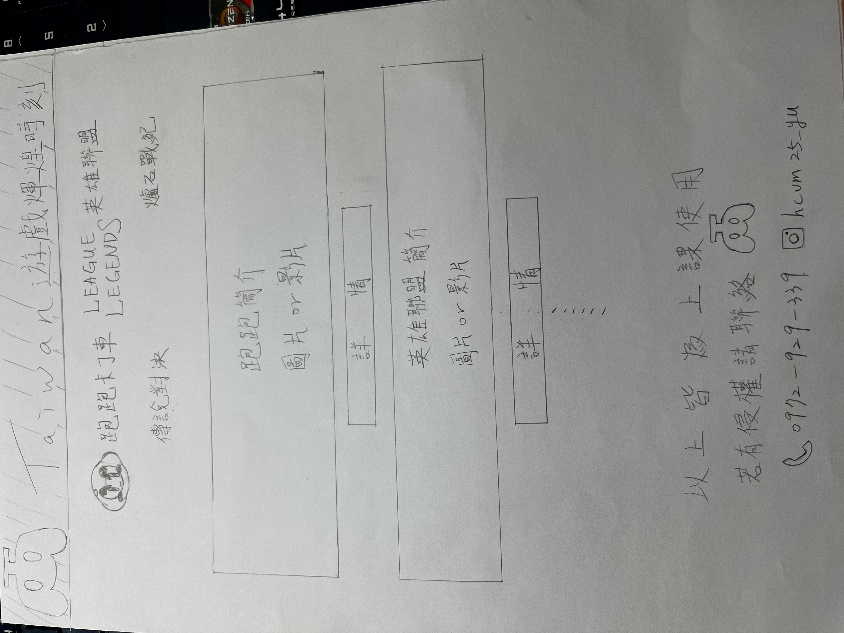 Taiwan 遊戲輝煌時刻
跑跑卡丁車 LEAGUE LEGENDS 英雄聯盟
傳說對決 爐石戰紀
跑跑簡介
圖片 or 影片
詳情
英雄聯盟簡介
圖片 or 影片
詳情
以上皆為上課使用
若有侵權請聯絡
0972-929-339 hcvm25_yu